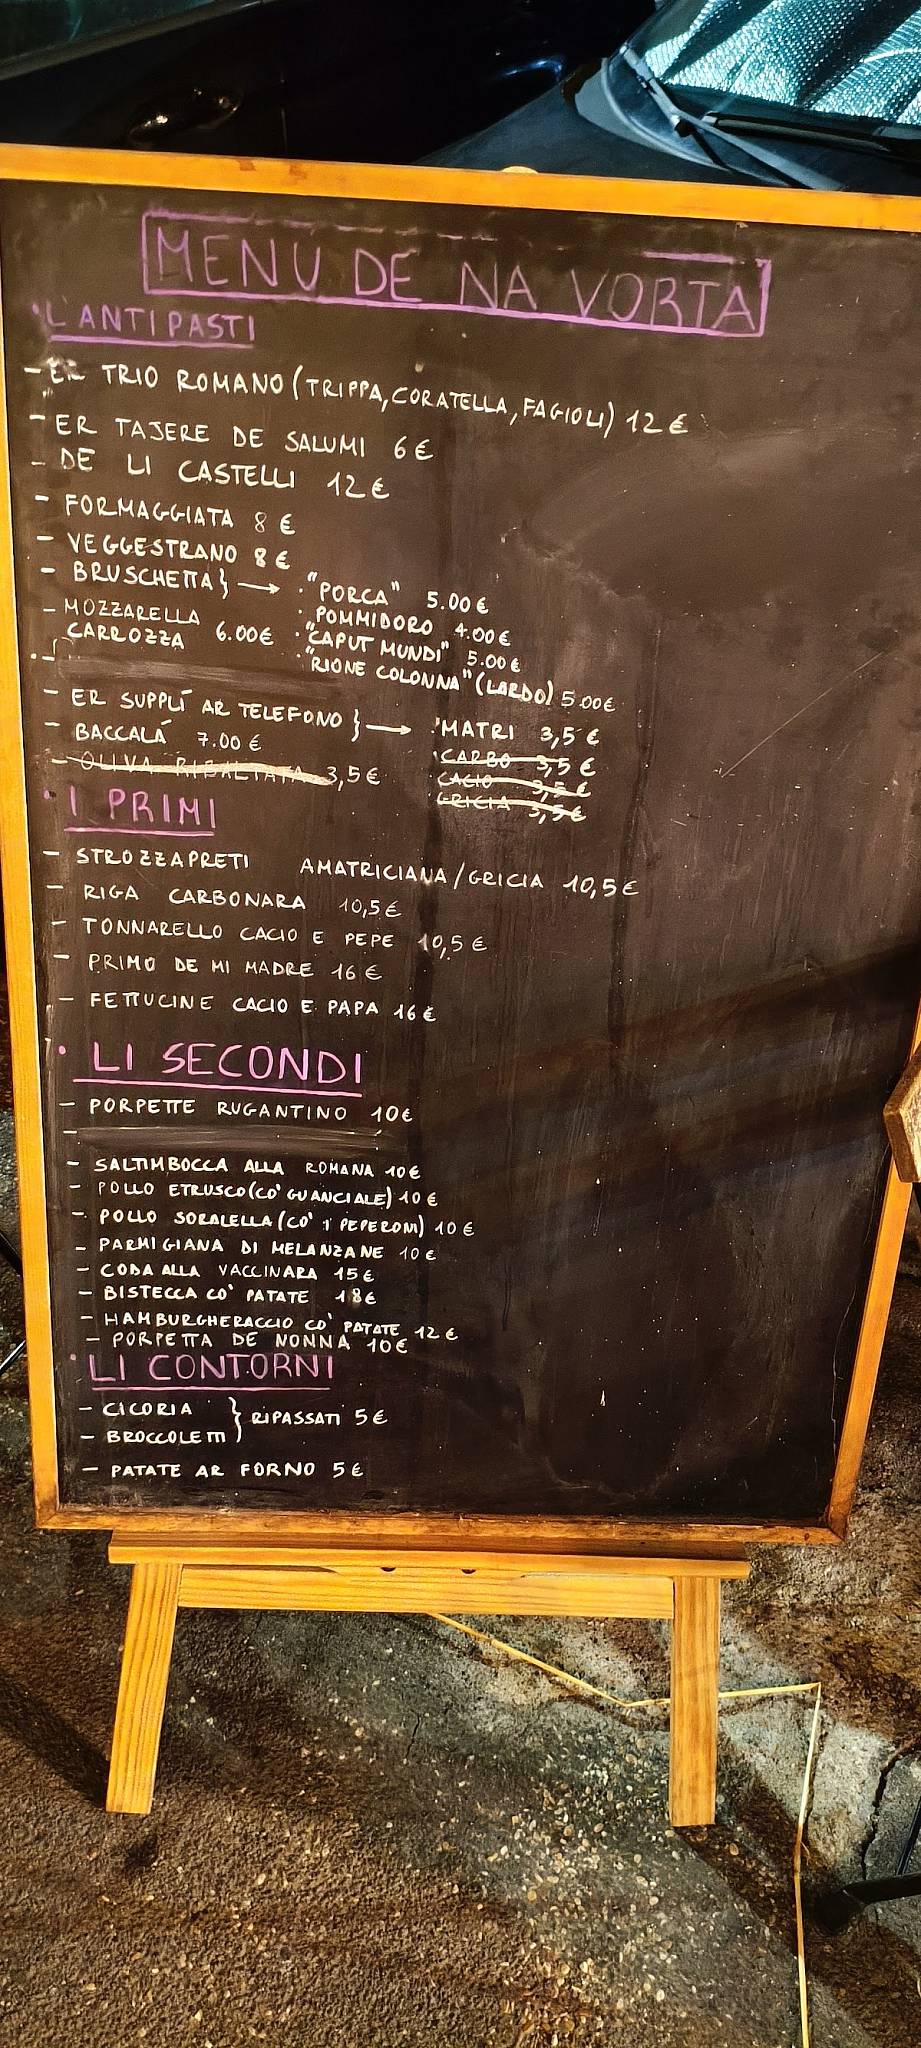 MENU DE NA VORTA
• L'ANTIPASTI
- ER TRIO ROMANO (TRIPPA, CORATELLA, FAGIOLI) 12 €
- ER TAJERE DE SALUMI 6 €
- DE LI CASTELLI 12 €
- FORMAGGIATA 8 €
- VEGGESTRANO 8 €
- BRUSCHETTA } → • "PORCA" 5.00 €
• POMMIDORO 4.00 €
• "CAPUT MUNDI" 5.00 €
• "RIONE COLONNA" (LARDO) 5.00 €
- MOZZARELLA
CARROZZA 6.00 €
- ER SUPPLÍ AR TELEFONO } → • MATRI 3,5 €
• CARBO 3,5 €
• CACIO 3,5 €
• GRICIA 3,5 €
- BACCALÁ 7.00 €
- OLIVA RIBALTATA 3,5 €
• I PRIMI
- STROZZAPRETI AMATRICIANA / GRICIA 10,5 €
- RIGA CARBONARA 10,5 €
- TONNARELLO CACIO E PEPE 10,5 €
- PRIMO DE MI MADRE 16 €
- FETTUCINE CACIO E PAPA 16 €
• LI SECONDI
- PORPETTE RUGANTINO 10 €
-
- SALTIMBOCCA ALLA ROMANA 10 €
- POLLO ETRUSCO (CO' GUANCIALE) 10 €
- POLLO SORALELLA (CO' I PEPERONI) 10 €
- PARMIGIANA DI MELANZANE 10 €
- CODA ALLA VACCINARA 15 €
- BISTECCA CO' PATATE 18 €
- HAMBURGHERACCIO CO' PATATE 12 €
- PORPETTA DE NONNA 10 €
• LI CONTORNI
- CICORIA } RIPASSATI 5 €
- BROCCOLETTI
- PATATE AR FORNO 5 €